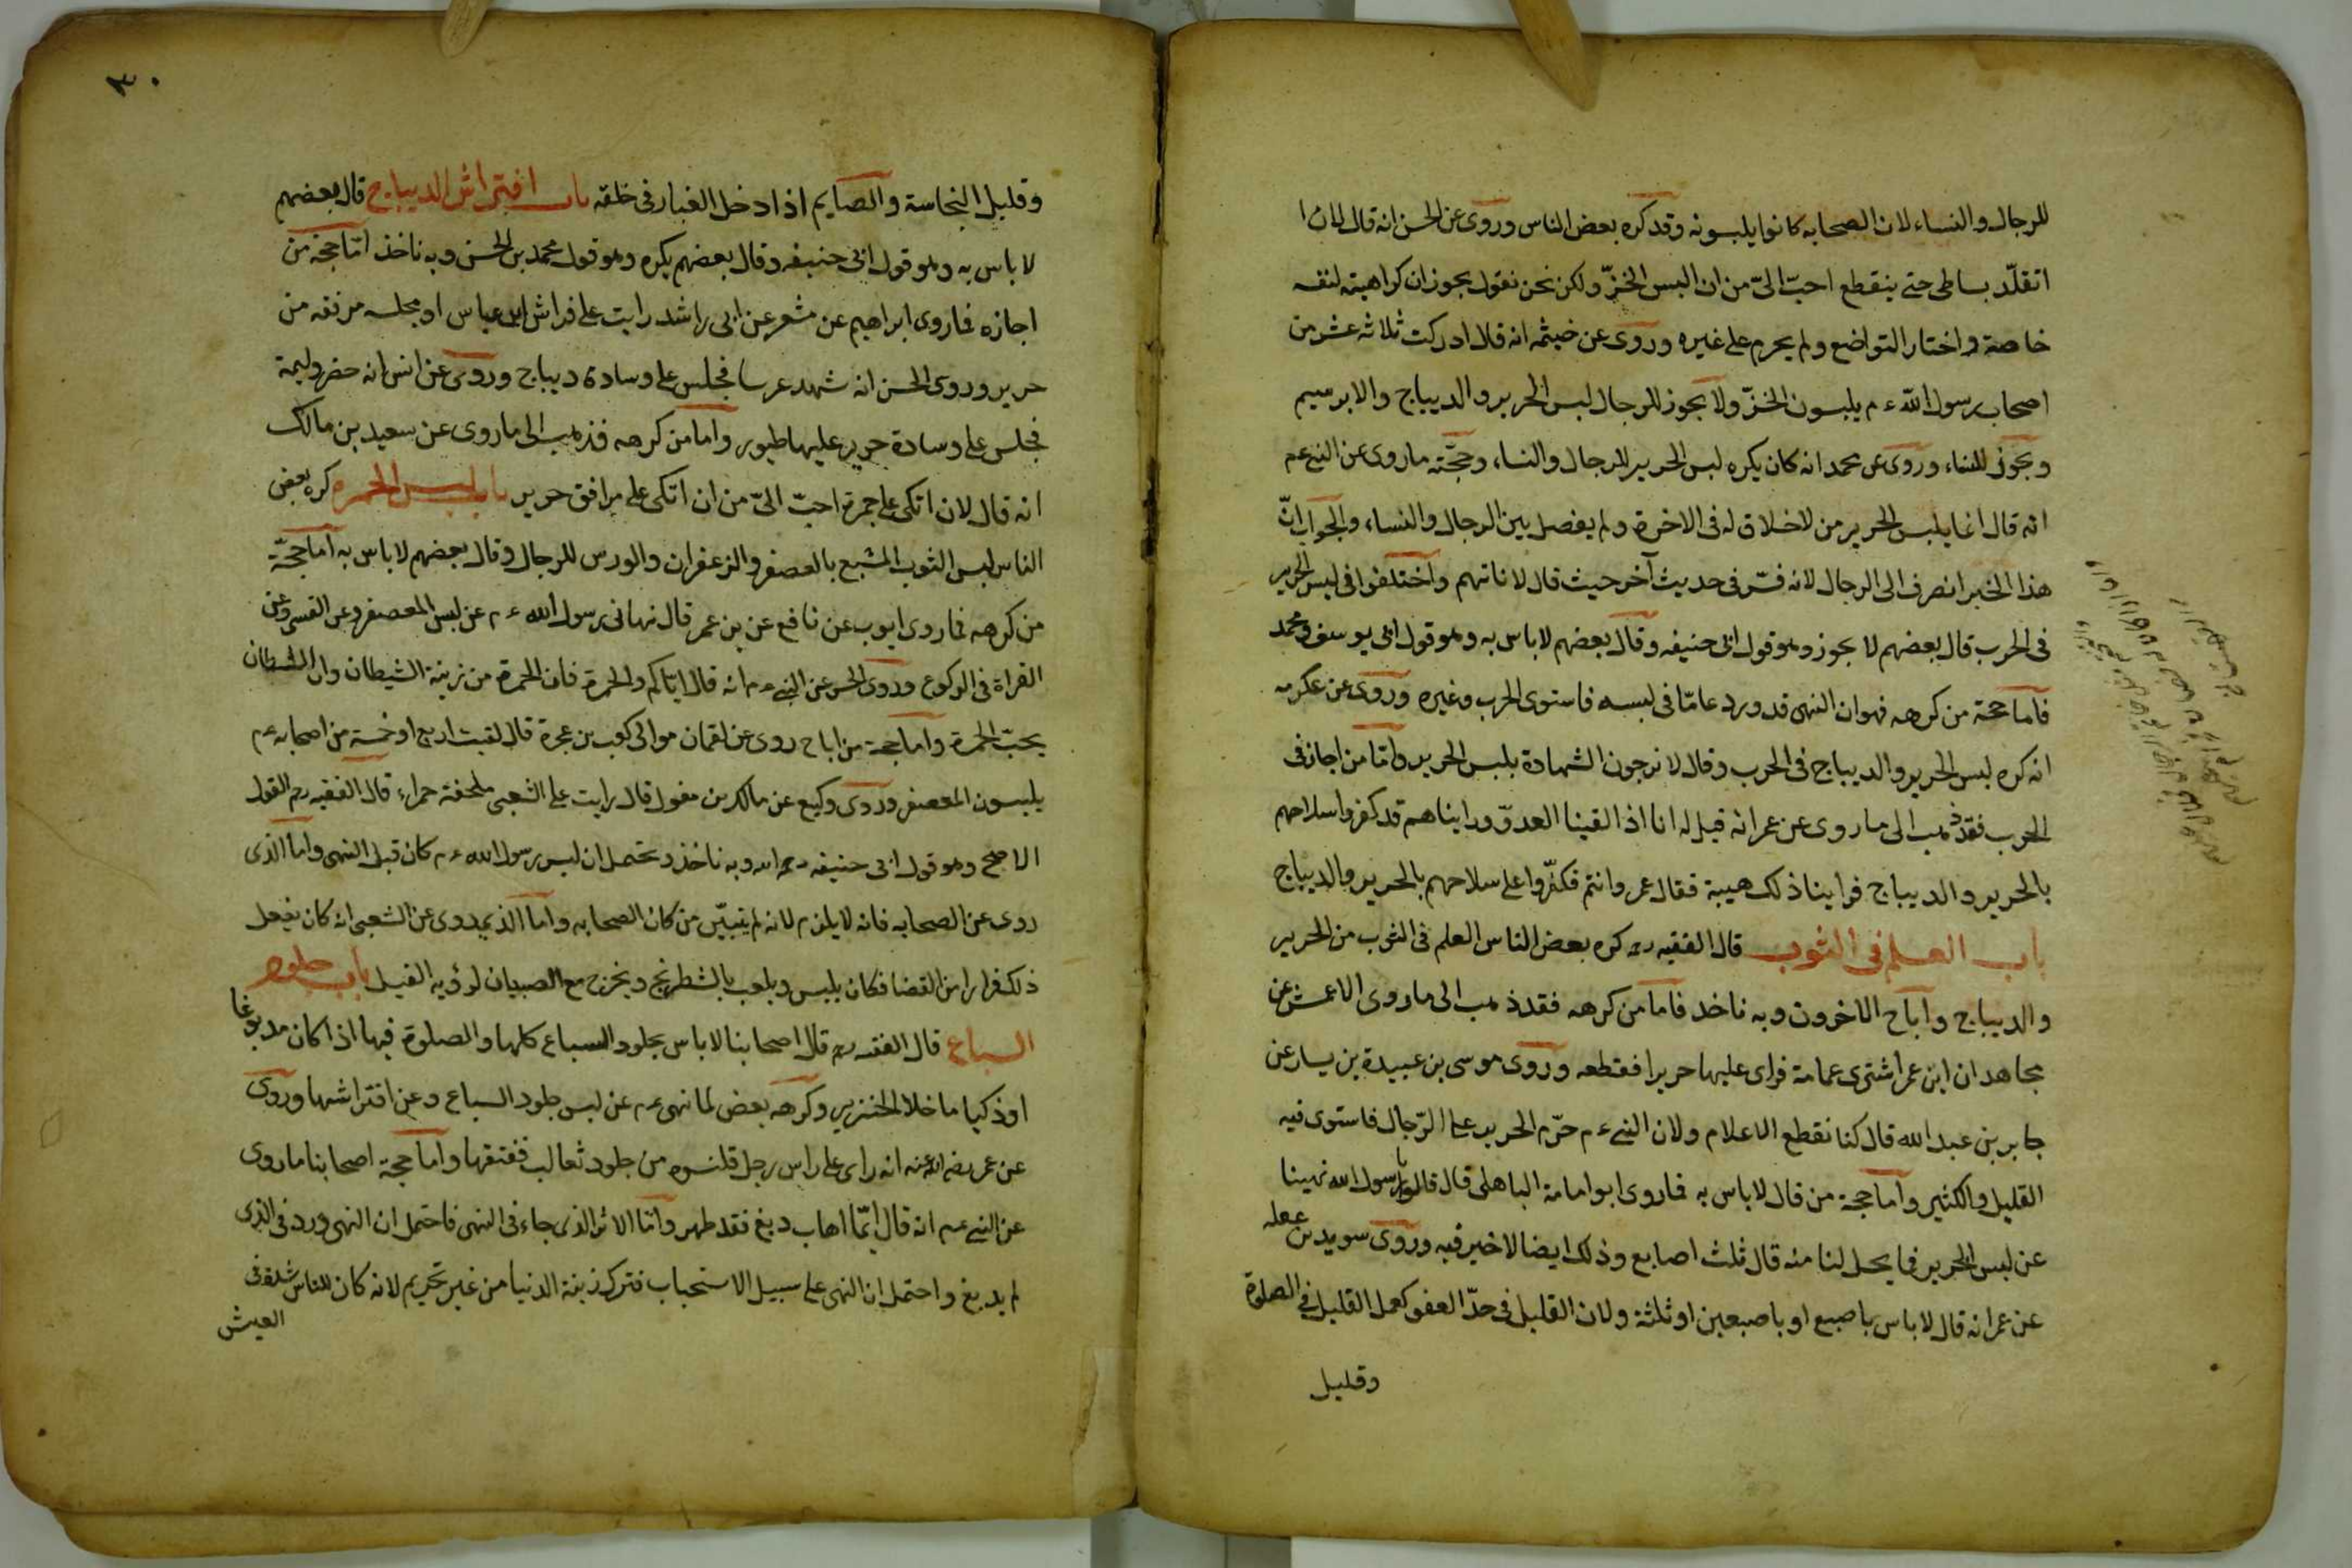 للرجال والنساء لان الصحابه كانوا يلبسونه وقد كره بعض الناس وروى عن الحسن انه قال لان ا
اتقلّد بساطى حتى ينقطع احبّ الىّ من ان البس الخزّ ولكن نحن نقول يجوز ان كراهيته لنفسه
خاصة واختار التواضع ولم يحرم على غيره وروى عن خيثمه انه قال ادركت ثلاثه عشر من
اصحاب رسول الله ءم يلبسون الخزّ ولا يجوز للرجال لبس الحرير والديباج والابرسيم
ويجوز للنساء وروى عن محمد انه كان يكره لبس الحرير للرجال والنساء وحجّته ما روى عن النبى عم
انه قال انما يلبس الحرير من لا خلاق له فى الاخرة ولم يفصل بين الرجال والنساء والجواب انّ
هذا الخبر انصرف الى الرجال لانه فسّر فى حديث آخر حيث قال لاناثهم واختلفوا فى لبس الحرير
فى الحرب قال بعضهم لا يجوز وهو قول ابى حنيفه وقال بعضهم لا باس به وهو قول ابى يوسف ومحمد
فاما حجة من كرهه فهو ان النهى قد ورد عامّا فى لبسه فاستوى الحرب وغيره وروى عن عكرمه
انه كره لبس الحرير والديباج فى الحرب وقال لا نرجون الشهادة بلبس الحرير وامّا من اجاز فى
الحرب فقد ذهب الى ما روى عن عمر انه قيل له انا اذا لقينا العدوّ وراينا هم قد كفروا سلاحهم
بالحرير والديباج فراينا ذلك هيبة فقال عمر وانتم فكفّروا على سلاحهم بالحرير والديباج
باب العلم فى الثوب قال الفقيه ره كره بعض الناس العلم فى الثوب من الحرير
والديباج واباح الاخرون وبه ناخد فاما من كرهه فقد ذهب الى ما روى الاعمش عن
مجاهد ان ابن عمر اشترى عمامة فراى عليها حريرا فقطعه وروى موسى بن عبيدة بن يسار عن
جابر بن عبد الله قال كنا نقطع الاعلام ولان النبى ءم حرّم الحرير على الرّجال فاستوى فيه
القليل والكثير واما حجة من قال لا باس به فاروى ابو امامة الباهلى قال قالوا يا رسول الله نهينا
عن لبس الحرير فما يحل لنا منه قال ثلث اصابع وذلك ايضا لا خير فيه وروى سويد بن غفله
عن عمر انه قال لا باس باصبع او باصبعين او ثلثة ولان القليل فى حدّ العفو كعمل القليل فى الصلوة
وقليل
٣٠
وقليل النجاسة والصايم اذا دخل الغبار فى حلقه باب افتراش الديباج قال بعضهم
لا باس به وهو قول ابى حنيفه وقال بعضهم يكره وهو قول محمد بن الحسن وبه ناخذ امّا حجة من
اجازه فماروى ابراهيم عن مشعر عن ابى راشد رايت على فراش ابن عباس او مجلسه مرفقه من
حرير وروى الحسن انه شهد عرسا فجلس على وسادة ديباج وروى عن انس انه حضر وليمة
فجلس على وسادة حرير عليها طيور واما من كرهه فذهب الى ما روى عن سعيد بن مالك
انه قال لان اتكى على جمرة احبّ الىّ من ان اتكى على مرافق حرير باب لبس الحمره كره بعض
الناس لبس الثوب المشبع بالعصفر والزعفران والورس للرجال وقال بعضهم لا باس به اما حجّة
من كرهه فما روى ايوب عن نافع عن بن عمر قال نهانى رسول الله ءم عن لبس المعصفر وعن القسى وعن
القراة فى الركوع وروى الحسن عن النبى ءم انه قال ايّاكم والحمرة فان الحمرة من زينة الشيطان وان الشيطان
يحبّ الحمرة واما حجة من اباح روى عن لقمان موالى كعب بن عجرة قال لقيت اربع او خمسة من اصحابه عم
يلبسون المعصفر وروى وكيع عن مالك بن مغول قال رايت على الشعبى ملحفة حمراء قال الفقيه رح القول
الاصح وهو قول ابى حنيفه رحمه الله وبه ناخذ ويحتمل ان لبس رسول الله ءم كان قبل النهى واما الذى
روى عن الصحابه فانه لا يلزم لانه لم يتبيّن من كان الصحابه واما الذى يروى عن الشعبى انه كان يفعل
ذلك فرارا من القضا فكان يلبس ويلعب بالشطرنج ويخرج مع الصبيان لرؤية الفيل باب جلود
السباع قال الفقيه ره قال اصحابنا لا باس بجلود السباع كلها والصلوة فيها اذا كان مدبوغا
او ذكيا ما خلا الخنزير وكرهه بعض لما نهى عم عن لبس جلود السباع وعن افتراشها وروى
عن عمر رضى الله عنه انه راى على راس رجل قلنسوه من جلود ثعالب ففتقها واما حجة اصحابنا ما روى
عن النبى عم انه قال ايّما اهاب دبغ فقد طهر وامّا الاثر الذى جاء فى النهى فاحتمل ان النهى ورد فى الذى
لم يدبغ واحتمل ان النهى على سبيل الاستحباب فترك زينة الدنيا من غير تحريم لانه كان للناس شدة فى
العيش